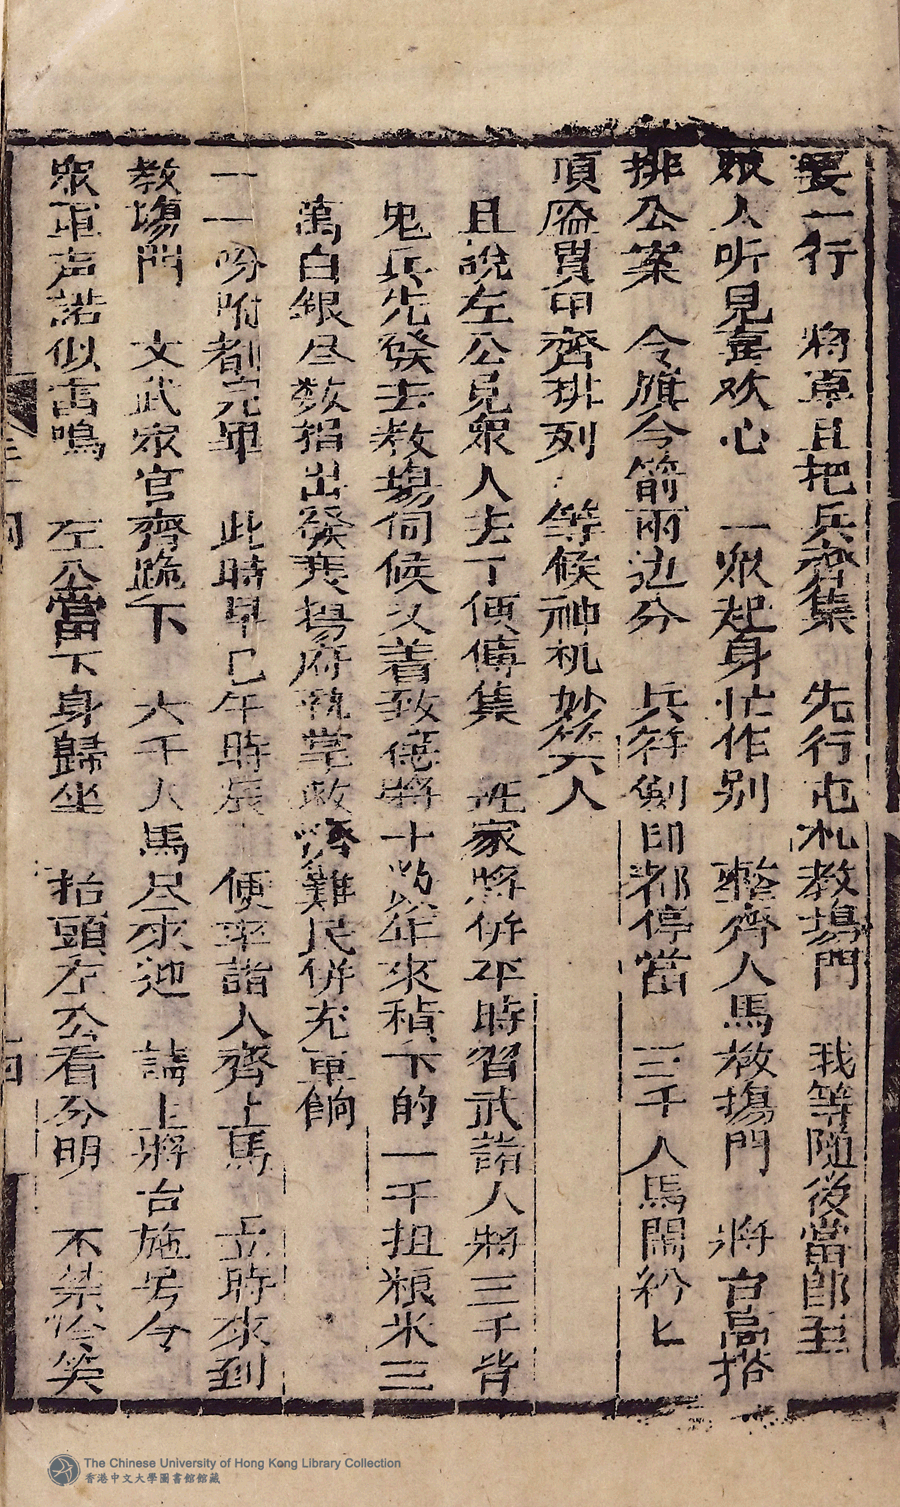 要一行　將軍且把兵齊集　先行屯札教場門　我等隨後當即至
眾人听見喜欢心　一眾起身忙作別　整齊人馬教場門　將官高搭
排公案　令旗令箭兩边分　兵符劍印都停當　三千人馬鬧紛匕
頂盔貫甲齊排列　等候神机妙筭人
且說左公見眾人去了便傳集　班家將併平時習武諸人將三千皆
鬼兵先發去教場伺候又着致德將十數年來積下的一千担粮米三
萬白銀尽數捐出發與揚府執掌救濟難民併充軍餉
一一吩咐都完畢　此時早已午時辰　便率諸人齊上馬　立時來到
教場門　文武眾官齊跪下　六千人馬尽來迎　請上將台施号令
眾軍声諾似雷鳴　左公當下身歸坐　抬頭左公看分明　不禁冷笑
The Chinese University of Hong Kong Library Collection
香港中文大學圖書館館藏